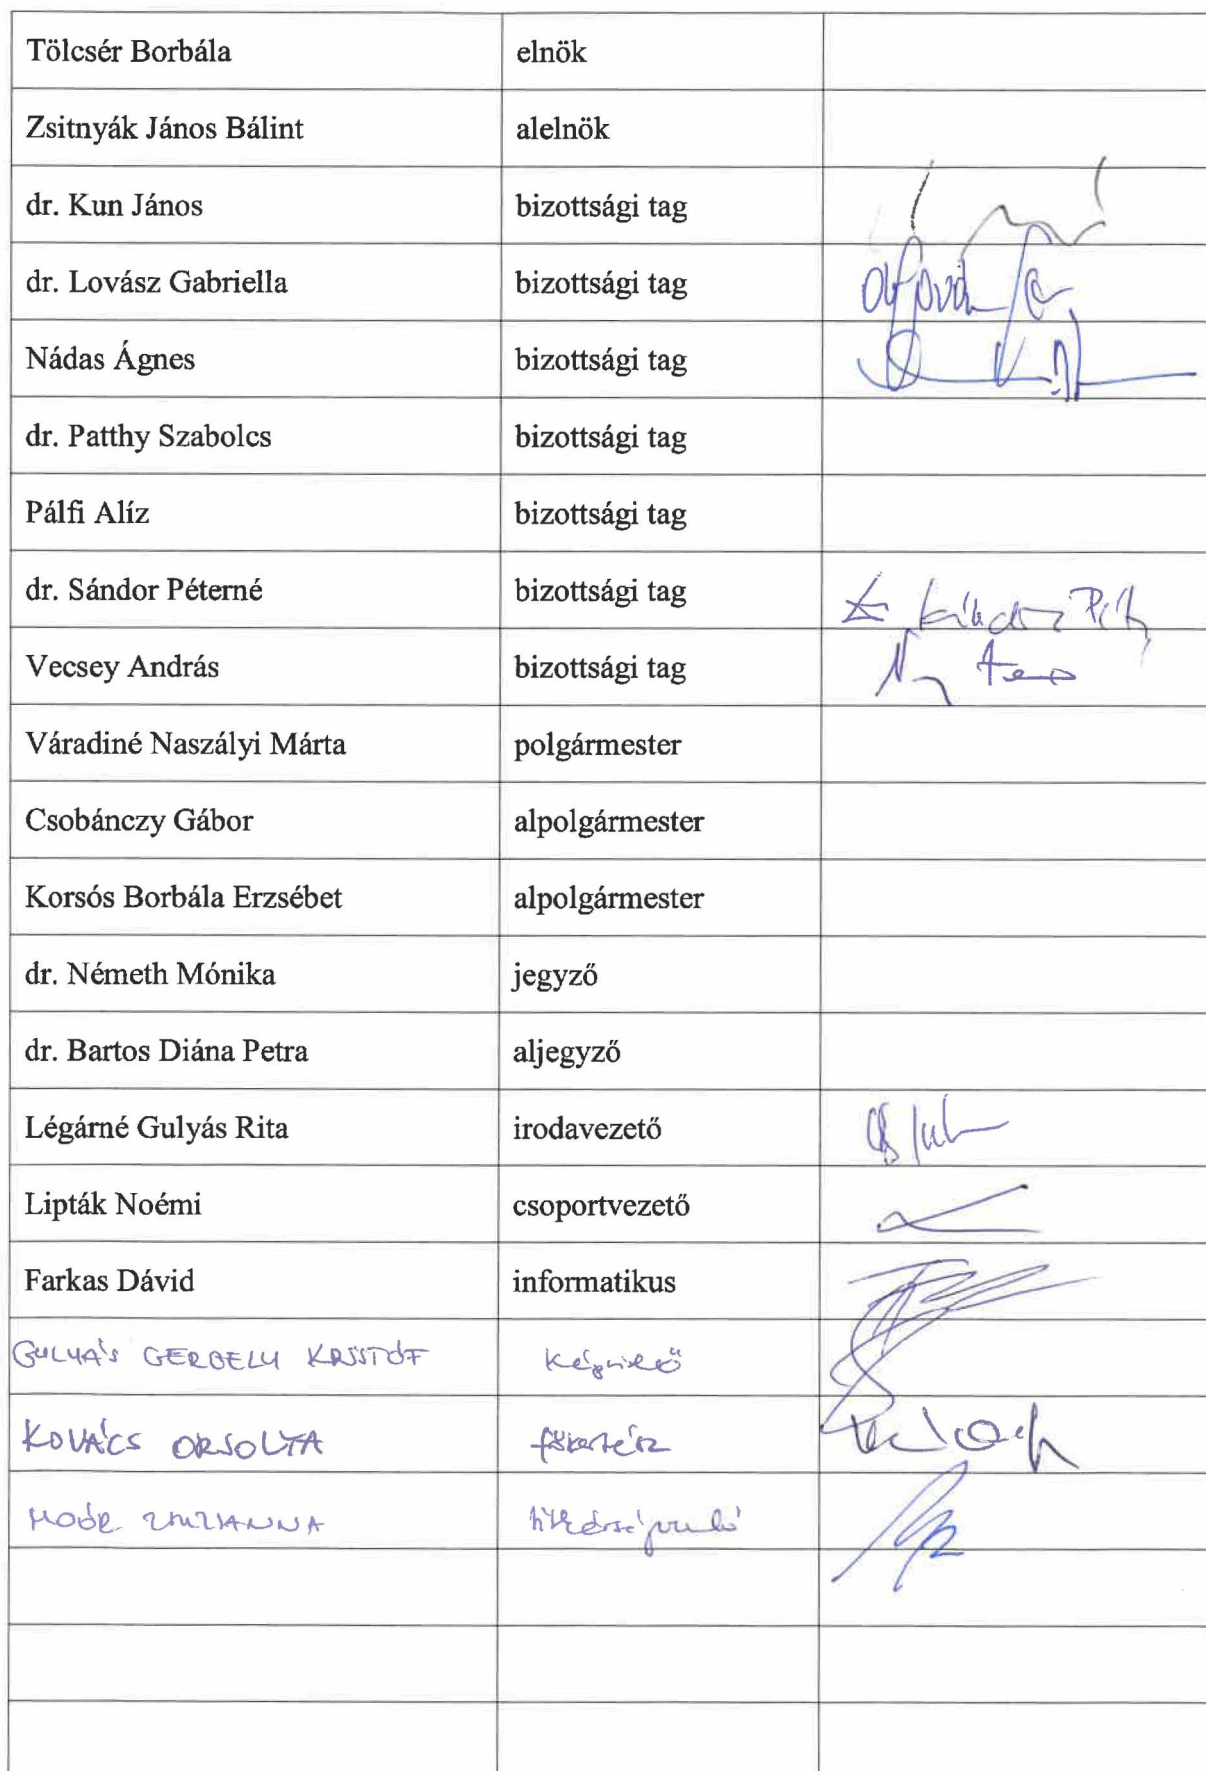 Tölcsér Borbála elnök
Zsitnyák János Bálint alelnök
dr. Kun János bizottsági tag
dr. Lovász Gabriella bizottsági tag
Nádas Ágnes bizottsági tag
dr. Patthy Szabolcs bizottsági tag
Pálfi Alíz bizottsági tag
dr. Sándor Péterné bizottsági tag
Vecsey András bizottsági tag
Váradiné Naszályi Márta polgármester
Csobánczy Gábor alpolgármester
Korsós Borbála Erzsébet alpolgármester
dr. Németh Mónika jegyző
dr. Bartos Diána Petra aljegyző
Légárné Gulyás Rita irodavezető
Lipták Noémi csoportvezető
Farkas Dávid informatikus
GULYÁS GERGELY KRISTÓF képviselő
KOVÁCS ORSOLYA főkertész
MOÓR ZSUZSANNA